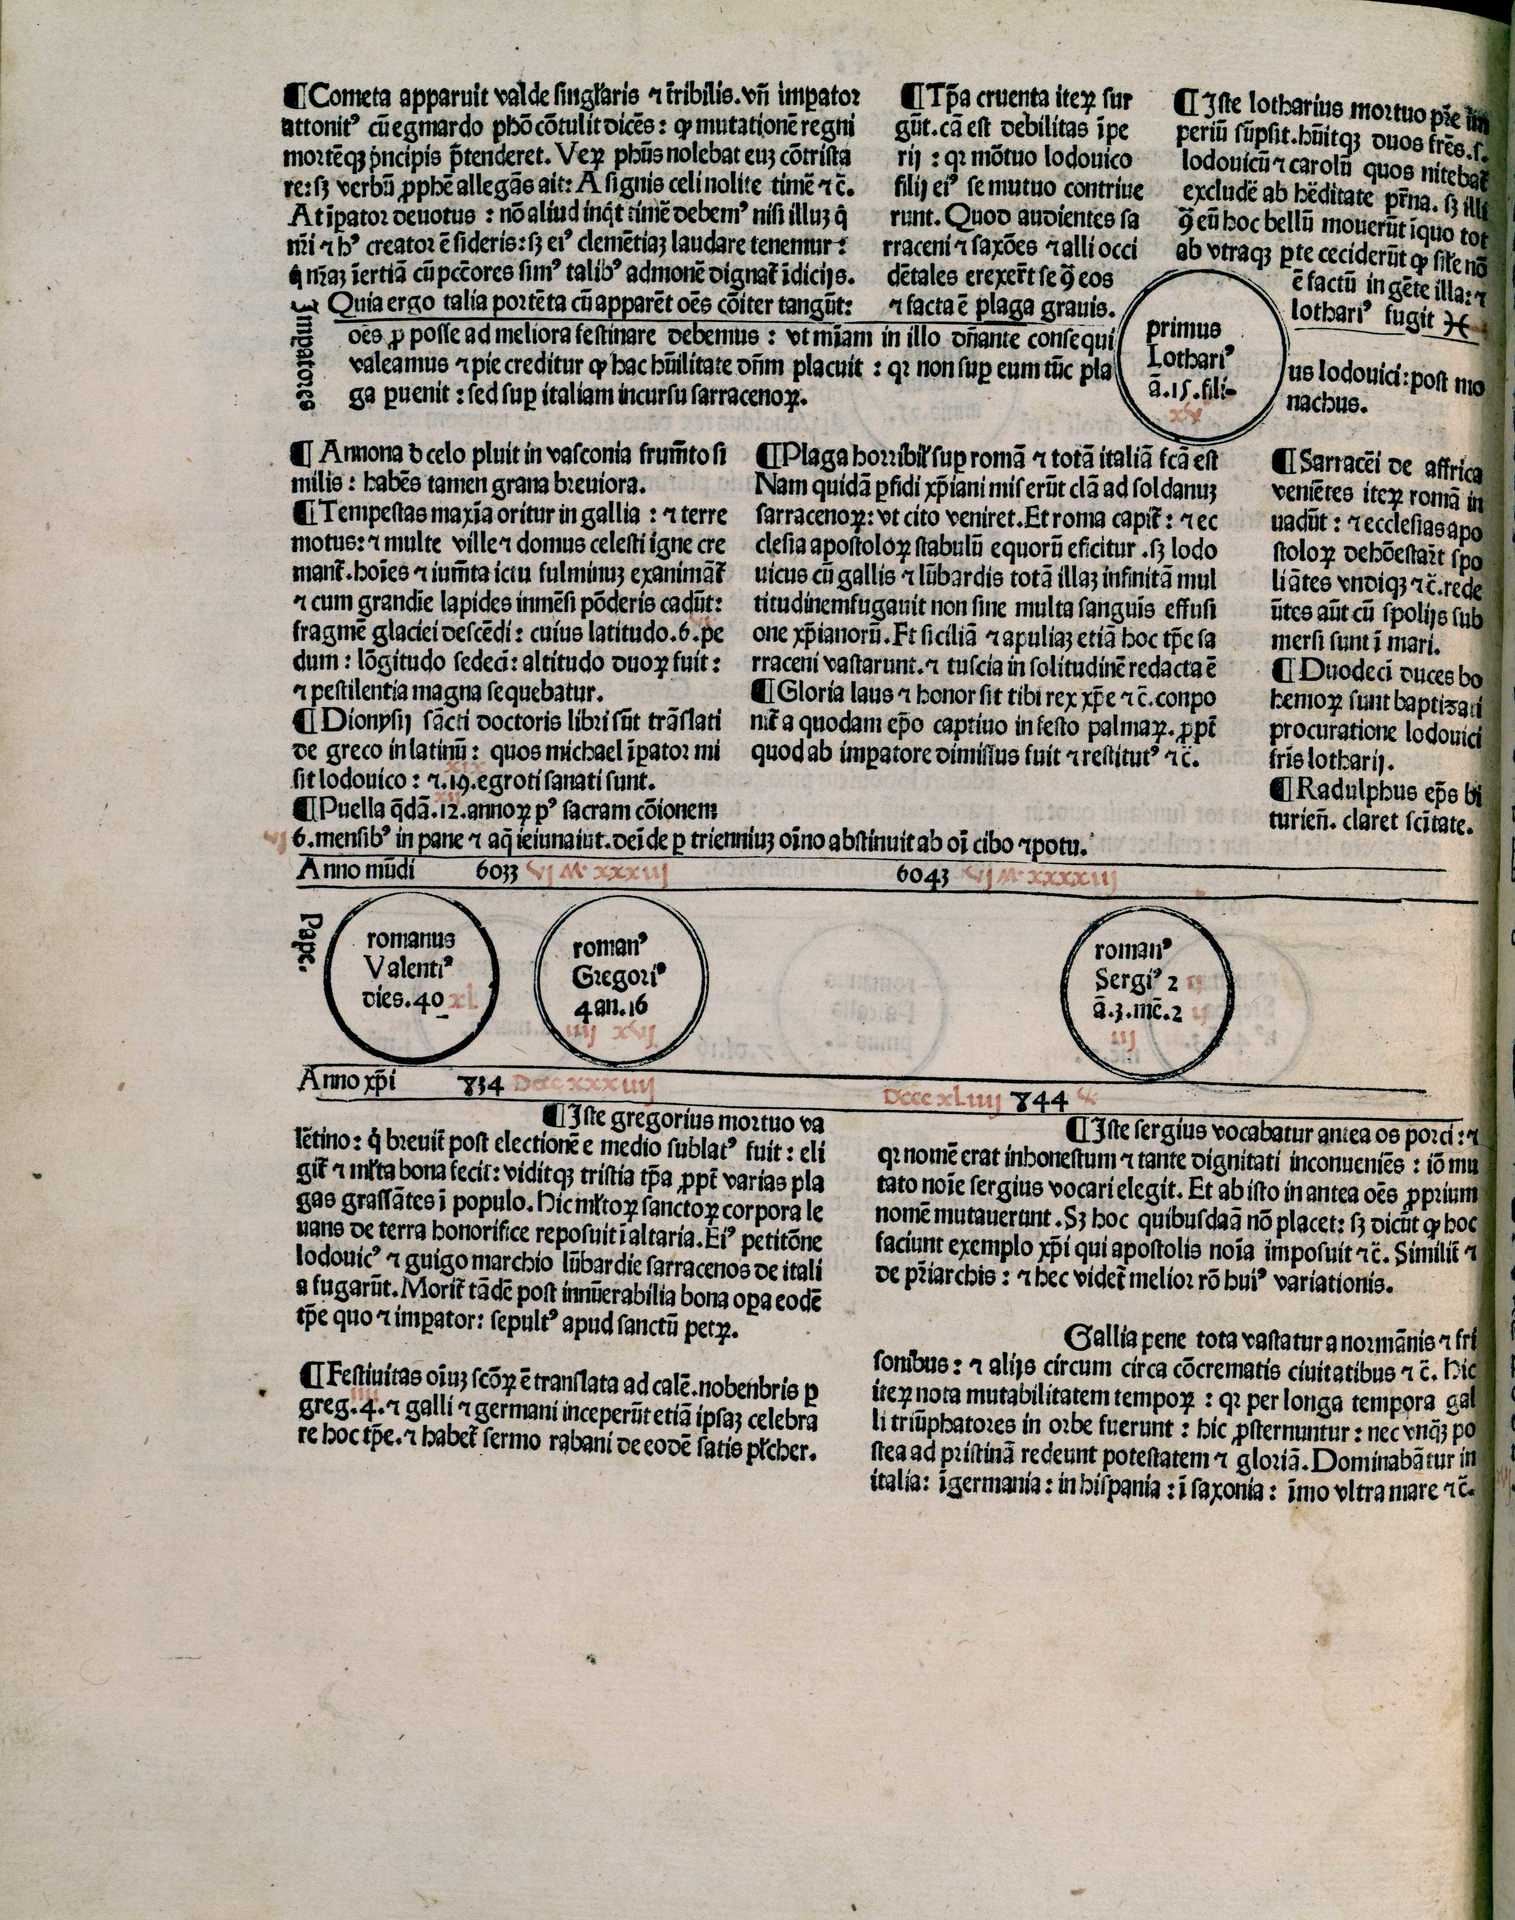 ¶Cometa apparuit valde singłaris ⁊ tr̃ibilis. vñ imꝑator
attonitꝰ cũ egmardo pho᷒ cõtulit dicẽs: ꝙ mutationẽ regni
mortẽqꝫ p̃ncipis p̃tenderet. Veꝝ phũs nolebat euꝫ cõtrista
re: sꝫ verbũ ꝓphẽ allegãs ait: A signis celi nolite timẽ ⁊ c̃.
At iꝑ̃ator deuotus: nõ aliud inq̃t timẽ debemꝰ nisi illuꝫ q̃
nr̃i ⁊ hꝰ creator ẽ sideris: sꝫ eiꝰ clemẽtiaꝫ laudare tenemur:
q̃ nr̃aꝫ iẽrtiã cũ pctẽores simꝰ talibꝰ admonẽ dignat̃ ĩdicijs.
Quia ergo talia portẽta cũ apparẽt oẽs cõiter tangũt:
Imꝑatores
oẽs ꝓ posse ad meliora festinare debemus: vt mĩam in illo dñante consequi
valeamus ⁊ pie creditur ꝙ hac hũilitate dñm placuit: qꝛ non suꝑ eum tũc pla
ga ꝑuenit: sed suꝑ italiam incursu sarracenoꝝ.
¶Tp̃a cruenta iteꝝ sur
gũt. cã est debilitas ĩpe
rij: qꝛ mõtuo lodouico
filij eiꝰ se mutuo contriue
runt. Quod audientes sa
rraceni ⁊ saxões ⁊ alli occi
dẽtales erexer̃t se ꝯ̃ eos
⁊ facta ẽ plaga grauis.
¶Iste lotharius mortuo pr̃e im
periũ sũpsit. hũitqꝫ duos fr̃es. s.
lodouicũ ⁊ carolũ quos nitebat̃
excludẽ ab hẽditate pr̃na. sꝫ illi
ꝯ̃ eũ hoc bellũ mouerũt ĩquo tot
ab vtraqꝫ ꝑte ceciderũt ꝙ sił̃e nõ
ẽ factũ in gẽte illa: ⁊
lothariꝰ fugit
primus
Lothariꝰ
ã. 15. fili-
xv
us lodouici: post mo
nachus.
¶Annona d̃ celo pluit in vasconia frum̃to si
milis: habẽs tamen grana breuiora.
¶Tempestas maxĩa oritur in gallia: ⁊ terre
motus: ⁊ multe ville ⁊ domus celesti igne cre
mant̃. hoĩes ⁊ ium̃ta ictu fulminuꝫ exanimãt̃
⁊ cum grandĩe lapides inmẽsi põderis cadũt:
fragmẽ glaciei descẽdi: cuius latitudo. 6. pe
dum: lõgitudo sedecĩ: altitudo duoꝝ fuit:
⁊ pestilentia magna sequebatur.
¶Dionysij sãcti doctoris libri sũt trãslati
de greco in latinũ: quos michael ĩꝑator mi
sit lodouico: ⁊. 19. egroti sanati sunt.
¶Puella q̃dã. 12. annoꝝ pꝰ sacram cõionem
6. mensibꝰ in pane ⁊ aq̃ ieiunaiut. deĩde ꝑ trienniuꝫ oĩno abstinuit ab oĩ cibo ⁊ potu.
¶Plaga horribił̃ suꝑ romã ⁊ totã italiã fcã est
Nam quidã ꝑfidi xp̃iani miserũt clã ad soldanuꝫ
sarracenoꝝ: vt cito veniret. Et roma capit̃: ⁊ ec
clesia apostoloꝝ stabulũ equorũ eficitur. sꝫ lodo
uicus cũ gallis ⁊ lũbardis totã illaꝫ infinitã mul
titudinemfugauit non sine multa sanguis̃ effusi
one xp̃ianorũ. Et siciliã ⁊ apuliaꝫ etiã hoc tp̃e sa
rraceni vastarunt. ⁊ tuscia in solitudinẽ redacta ẽ
¶Gloria laus ⁊ honor sit tibi rex xp̃e ⁊ c̃. conpo
nit̃ a quodam ep̃o captiuo in festo palmaꝝ. ꝓpt̃
quod ab imꝑatore dimissus fuit ⁊ restitutꝰ ⁊ c̃.
¶Sarracẽi de affrica
veniẽtes iteꝝ romã in
uadũt: ⁊ ecclesias apo
stoloꝝ dehõestar̃t spo
liãtes vndiqꝫ ⁊ c̃. rede
ũtes aũt cũ spolijs sub
mersi sunt ĩ mari.
¶Duodecĩ duces bo
hemoꝝ sunt baptizati
procuratione lodouici
fr̃is lotharij.
¶Radulphus ep̃s bi
turieñ. claret scĩtate.
Anno mũdi 6033 VI M xxxiij 6043 VI M xxxxiij
Pape.
romanus
Valentiꝰ
dies. 40 xl
romanꝰ
Gregoriꝰ
4 an. 16
iiij xvj
romanꝰ
Sergiꝰ 2
ã. 3. mẽ. 2
iij
Anno xp̃i 834 Dccc xxxiiij Dccc xliiij 844
¶Iste gregorius mortuo va
lẽtino: q̃ breuit̃ post electionẽ e medio sublatꝰ fuit: eli
git̃ ⁊ mł̃ta bona fecit: viditqꝫ tristia tp̃a ꝓpt̃ varias pla
gas grassãtes ĩ populo. Hic mł̃toꝝ sanctoꝝ corpora le
uans de terra honorifice reposuit ĩ altaria. Eiꝰ petitõne
lodouicꝰ ⁊ guigo marchio lũbardie sarracenos de itali
a fugarũt. Morit̃ tãdẽ post innũerabilia bona oꝑa eodẽ
tp̃e quo ⁊ imꝑator: sepultꝰ apud sanctũ petꝝ.
¶Festiuitas oĩuꝫ scõꝝ ẽ translata ad calẽ. nobenbris ꝑ
greg. 4. ⁊ galli ⁊ germani inceperũt etiã ipsaꝫ celebra
re hoc tp̃e. ⁊ habet̃ sermo rabani de eodẽ satis pł̃cher.
¶Iste sergius vocabatur antea os porci: ⁊
qꝛ nomẽ erat inhonestum ⁊ tante dignitati inconueniẽs: iõ mu
tato noĩe sergius vocari elegit. Et ab isto in antea oẽs ꝓprium
nomẽ mutauerunt. Sꝫ hoc quibusdaã nõ placet: sꝫ dicũt ꝙ hoc
faciunt exemplo xp̃i qui apostolis noĩa imposuit ⁊ c̃. Similit̃ ⁊
de pr̃iarchis: ⁊ hec videt̃ melior rõ huiꝰ variationis.
Gallia pene tota vastatur a normãnis ⁊ fri
sonibus: ⁊ alijs circum circa cõcrematis ciuitatibus ⁊ c̃. Hic
iteꝝ nota mutabilitatem tempoꝝ: qꝛ per longa tempora gal
li triũphatores in orbe fuerunt: hic ꝓsternuntur: nec vnq̃ꝫ po
stea ad pristinã redeunt potestatem ⁊ gloriã. Dominabãtur in
italia: ĩ germania: in hispania: ĩ saxonia: ĩmo vltra mare ⁊ c̃.